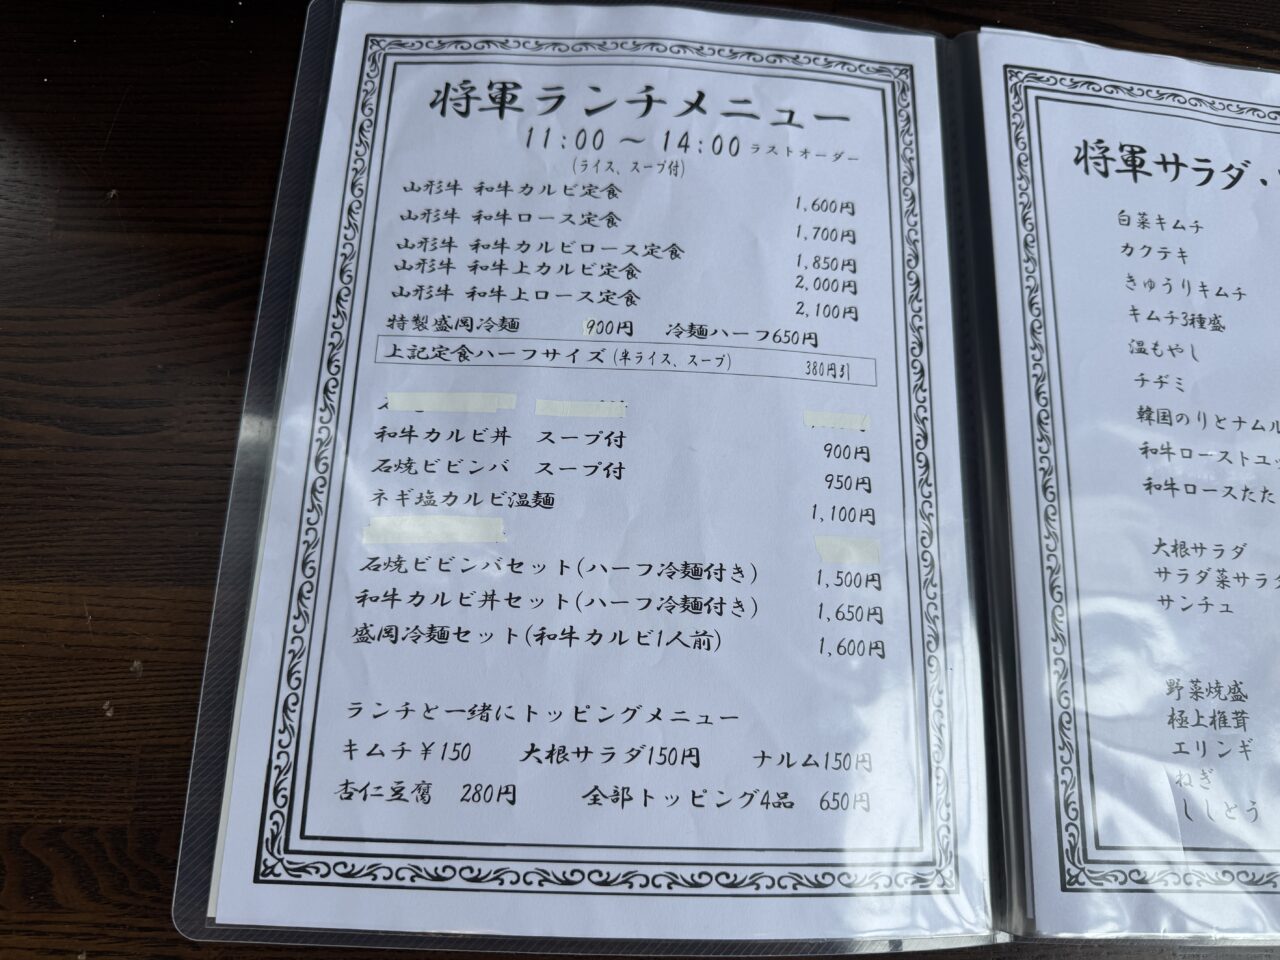 将軍ランチメニュー
11:00 ～ 14:00 ラストオーダー
(ライス、スープ付)
山形牛 和牛カルビ定食 1,600円
山形牛 和牛ロース定食 1,700円
山形牛 和牛カルビロース定食 1,850円
山形牛 和牛上カルビ定食 2,000円
山形牛 和牛上ロース定食 2,100円
特製盛岡冷麺 900円 冷麺ハーフ650円
上記定食ハーフサイズ(半ライス、スープ) 380円引
和牛カルビ丼 スープ付 900円
石焼ビビンバ スープ付 950円
ネギ塩カルビ温麺 1,100円
石焼ビビンバセット(ハーフ冷麺付き) 1,500円
和牛カルビ丼セット(ハーフ冷麺付き) 1,650円
盛岡冷麺セット(和牛カルビ1人前) 1,600円
ランチと一緒にトッピングメニュー
キムチ￥150 大根サラダ150円 ナルム150円
杏仁豆腐 280円 全部トッピング4品 650円
将軍サラダ・
白菜キムチ
カクテキ
きゅうりキムチ
キムチ3種盛
温もやし
チヂミ
韓国のりとナムル
和牛ローストユッ
和牛ロースたた
大根サラダ
サラダ菜サラダ
サンチュ
野菜焼盛
極上椎茸
エリンギ
ねぎ
ししとう